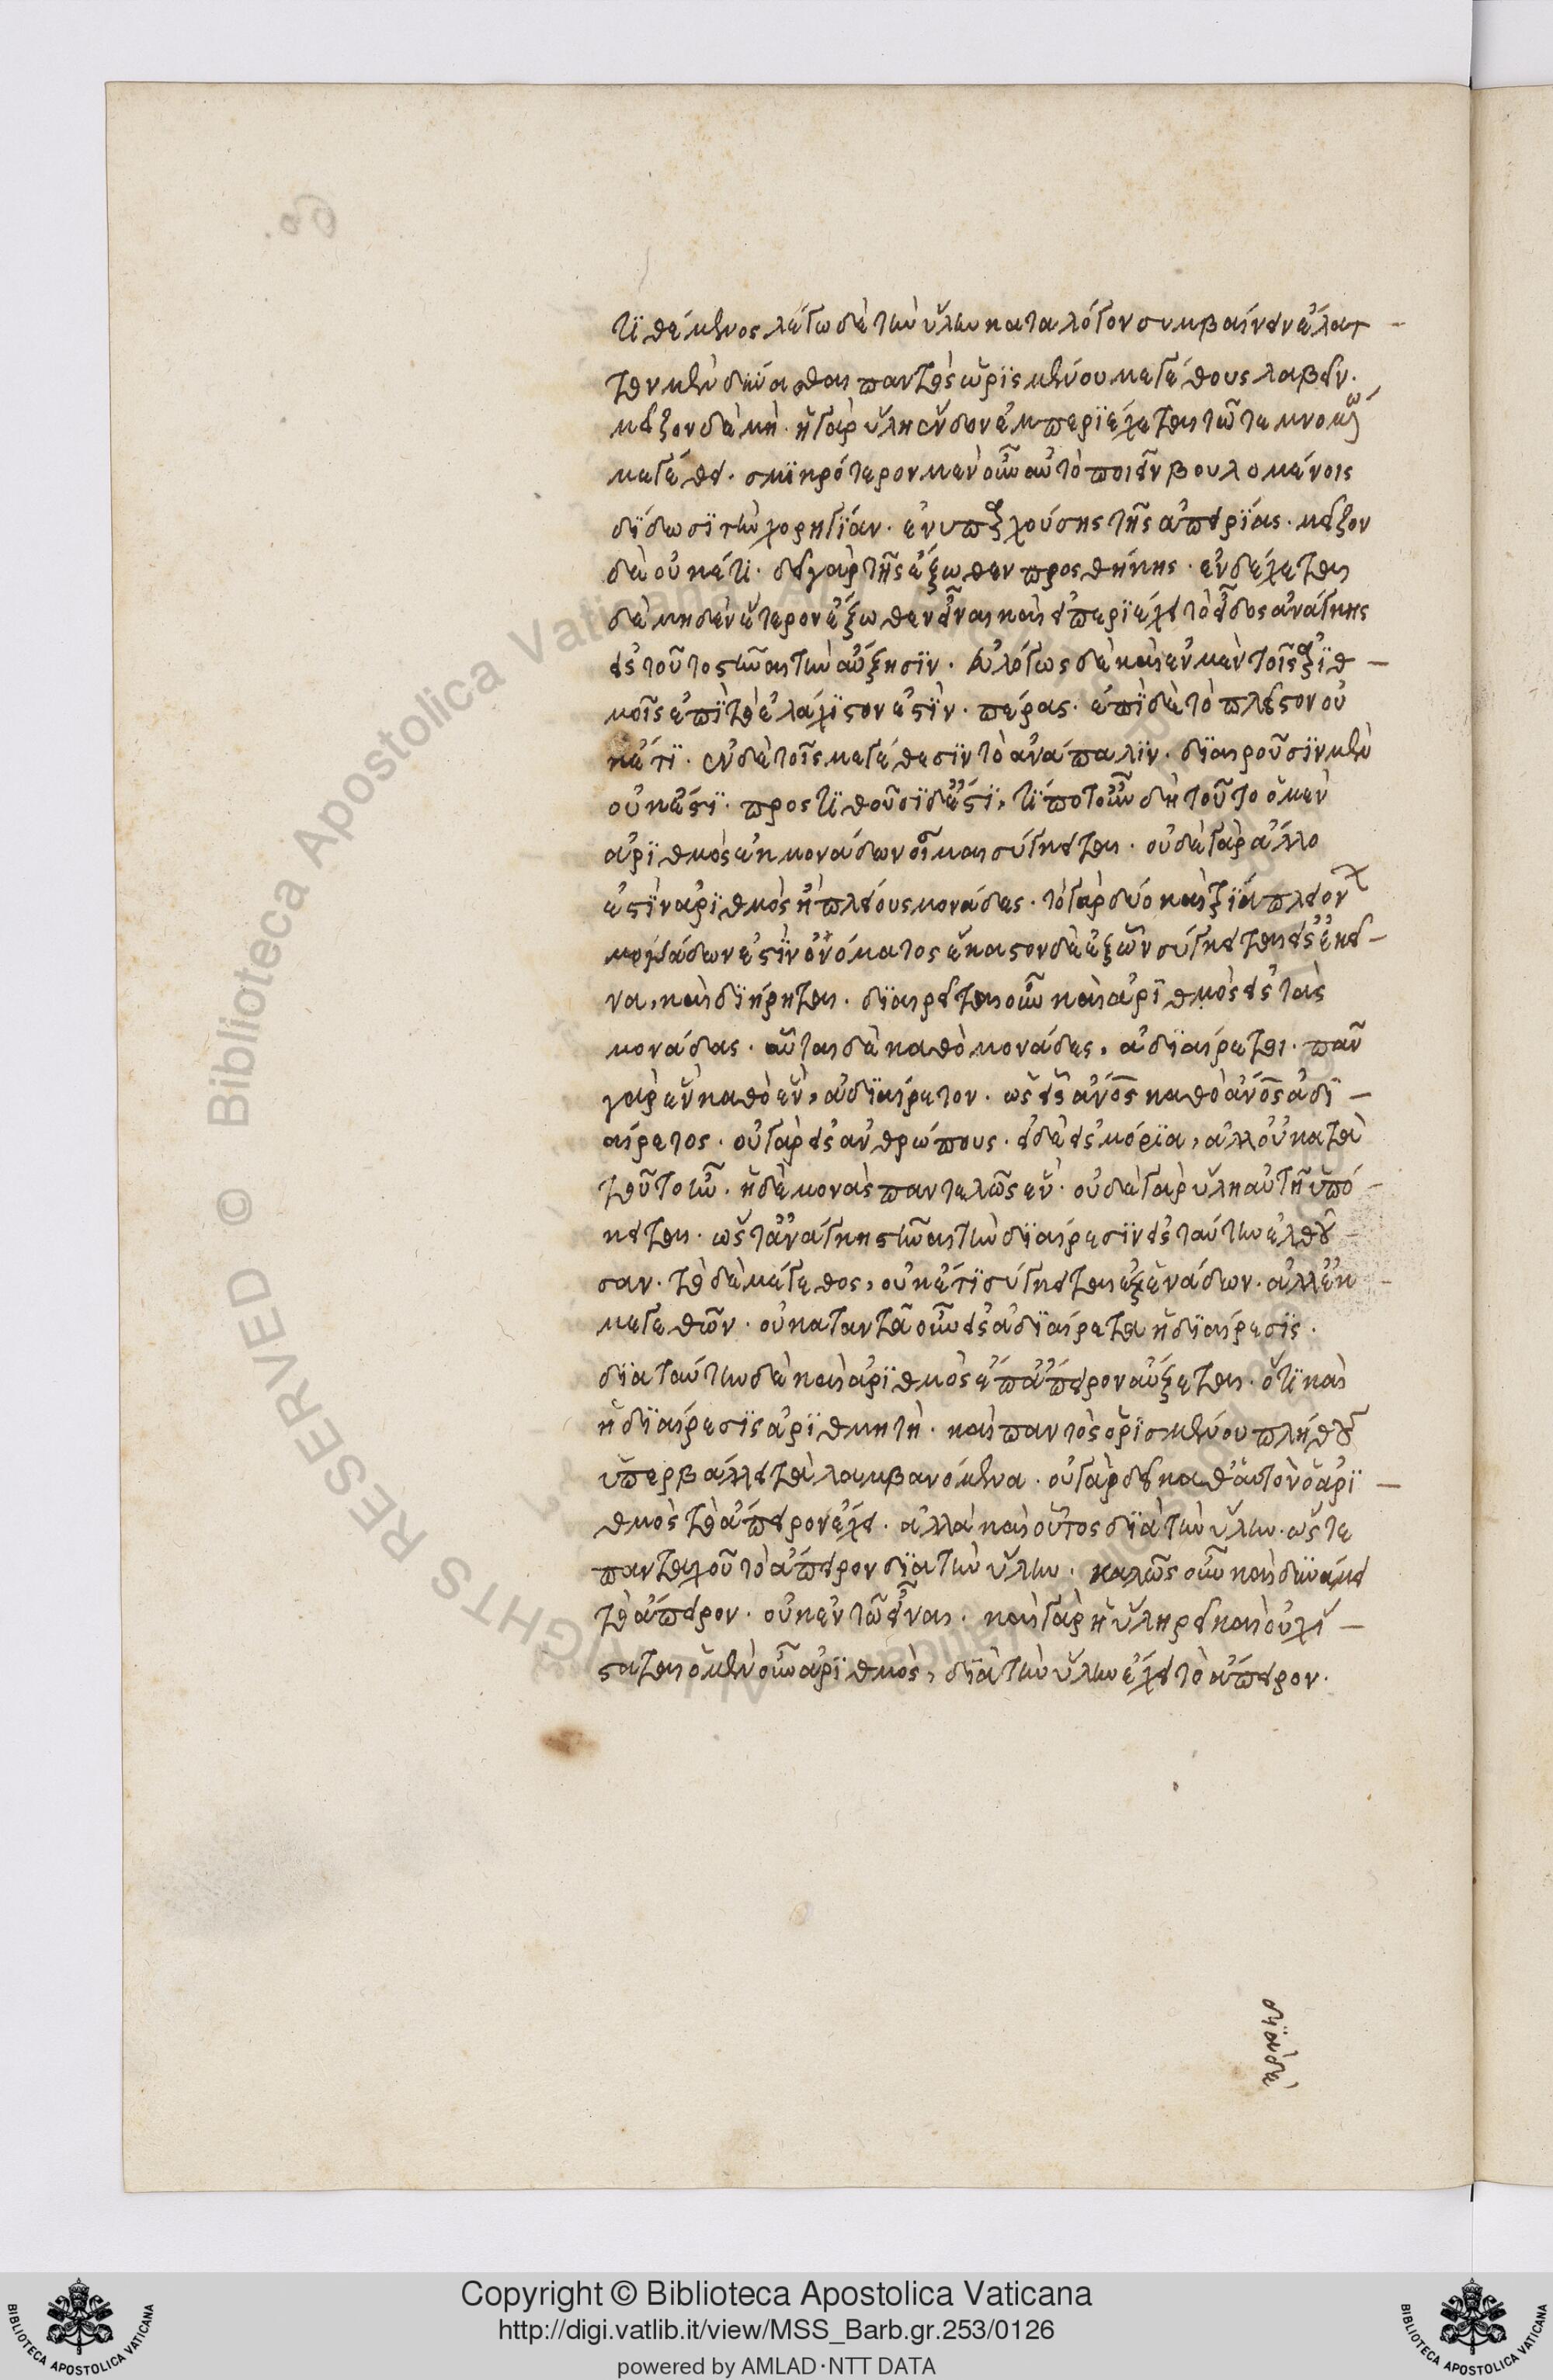 τιθέμενος λέγω δὲ τὴν ὕλην κατα λόγον συμβαίνειν ἔλατ-
τον μὲν δύνασθαι παντὸς ὡρισμένου μεγέθους λαβεῖν.
μεῖζον δὲ μή. ἡ γὰρ ὕλη ἔνδον ἐμπεριέχεται τῶ τεμνομένω
μεγέθει. σμικρότερον μὲν οὖν αὐτὸ ποιεῖν βουλομένοις
δίδωσι τὴν χορηγίαν. ἐνυπαρχούσης τῆς ἀπειρίας. μεῖζον
δὲ οὐκέτι. δεῖ γὰρ τῆς ἔξωθεν προσθήκης. ἐνδέχεται
δὲ μηδὲν ἕτερον ἔξωθεν εἶναι καὶ εἰ περιέχει τὸ εἶδος ἀνάγκης
εἰς τοῦτο στῆναι τὴν αὔξησιν. εὐλόγως δὲ καὶ ἐν μὲν τοῖς ἀριθ-
μοῖς ἐπὶ τὸ ἐλάχιστον ἐστὶν. πέρας. ἐπὶ δὲ τὸ πλεῖστον οὐ
κέτι. ἐν δὲ τοῖς μεγέθεσιν τὸ ἀνάπαλιν. διαιροῦσιν μὲν
οὐκ ἔστι. προστιθοῦσι δὲ ἔστι, τί ποτ' οὖν δὴ τοῦτο ὁ μὲν
ἀριθμὸς ἐκ μονάδων οἶμαι σύγκειται. οὐδὲ γὰρ ἄλλο
ἐστὶν ἀριθμὸς ἢ πλείους μονάδες. τὸ γὰρ δύο καὶ τρία πλειόνων
μονάδων ἐστὶν ὀνόματος ἕκαστον δὲ ἐξ ὧν σύγκειται εἰς ἐκεῖ-
να, καὶ διήρηται. διαιρεῖται οὖν καὶ ἀριθμὸς εἰς τὰς
μονάδας. αὗται δὲ καθὸ μονάδες, ἀδιαίρετοι. πᾶν
γὰρ ἓν καθὸ ἓν, ἀδιαίρετον. ὡς εἷς ἄνος καθὸ ἄνος ἀδι-
αίρετος. οὐ γὰρ εἰς ἀνθρώπους. εἰ δὲ εἰς μόρια, ἀλλ' οὐ κατὰ
τοῦτο ἦν. ἡ δὲ μονὰς παντελῶς ἕν. οὐδὲ γὰρ ὕλη αὐτῆ ὑπό-
κειται. ὥστ' ἀνάγκη στῆναι τὴν διαίρεσιν εἰς ταύτην ἐλθοῦ-
σαν. τὸ δὲ μέγεθος, οὐκέτι σύγκειται ἐξ ἑνάδων. ἀλλ' ἐκ
μεγεθῶν. οὐκ ἀπαντᾶ οὖν εἰς ἀδιαίρετα ἡ διαίρεσις.
διὰ ταύτην δὲ καὶ ἀριθμὸς ἐπ' ἄπειρον αὔξεται. ὅτι καὶ
ἡ διαίρεσις ἀριθμητὴ. καὶ παντὸς ὁρισμένου πλήθους
ὑπερβάλλει τὰ λαμβανόμενα. οὐ γὰρ δεῖ καθ' αὑτὸν ὁ ἀρι-
θμὸς τὸ ἄπειρον ἔχει. ἀλλὰ καὶ οὗτος διὰ τὴν ὕλην. ὥστε
πανταχοῦ τὸ ἄπειρον διὰ τὴν ὕλην. καλῶς οὖν καὶ δυνάμει
τὸ ἄπειρον. οὐκ ἐν τῶ εἶναι. καὶ γὰρ ἡ ὕλη ῥεῖ καὶ οὐχ ἵ-
σταται ὁ μὲν οὖν ἀριθμὸς, διὰ τὴν ὕλην ἔχει τὸ ἄπειρον.
διὰ δὲ
Copyright © Biblioteca Apostolica Vaticana
http://digi.vatlib.it/view/MSS_Barb.gr.253/0126
powered by AMLAD·NTT DATA